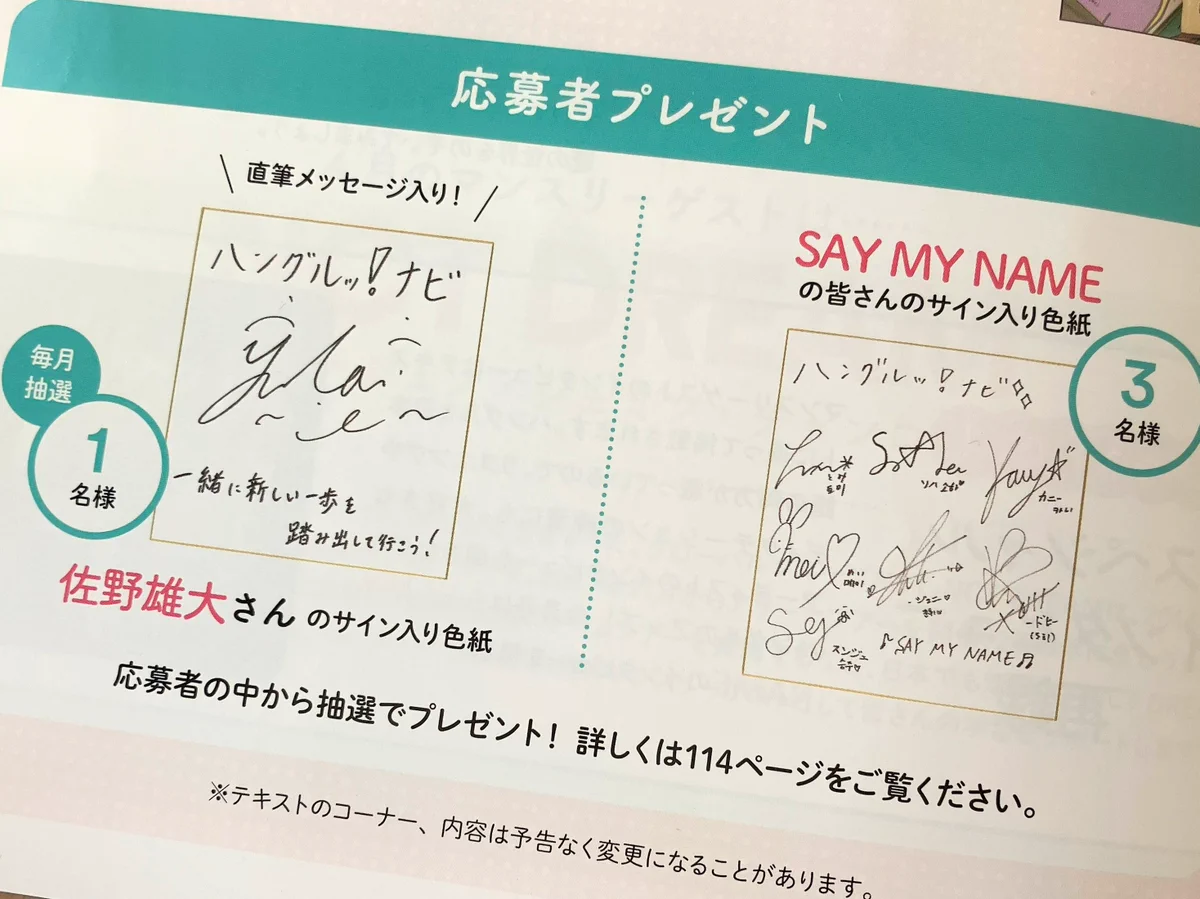 応募者プレゼント
直筆メッセージ入り!
ハングルッ!ナビ
一緒に新しい一歩を
踏み出して行こう!
毎月
抽選
1
名様
佐野雄大さん のサイン入り色紙
SAY MY NAME
の皆さんのサイン入り色紙
3
名様
ハングルッ!ナビ
カニー
mei
ジュニー
ドヒ
スンジュ
SAY MY NAME
応募者の中から抽選でプレゼント! 詳しくは114ページをご覧ください。
※テキストのコーナー、内容は予告なく変更になることがあります。